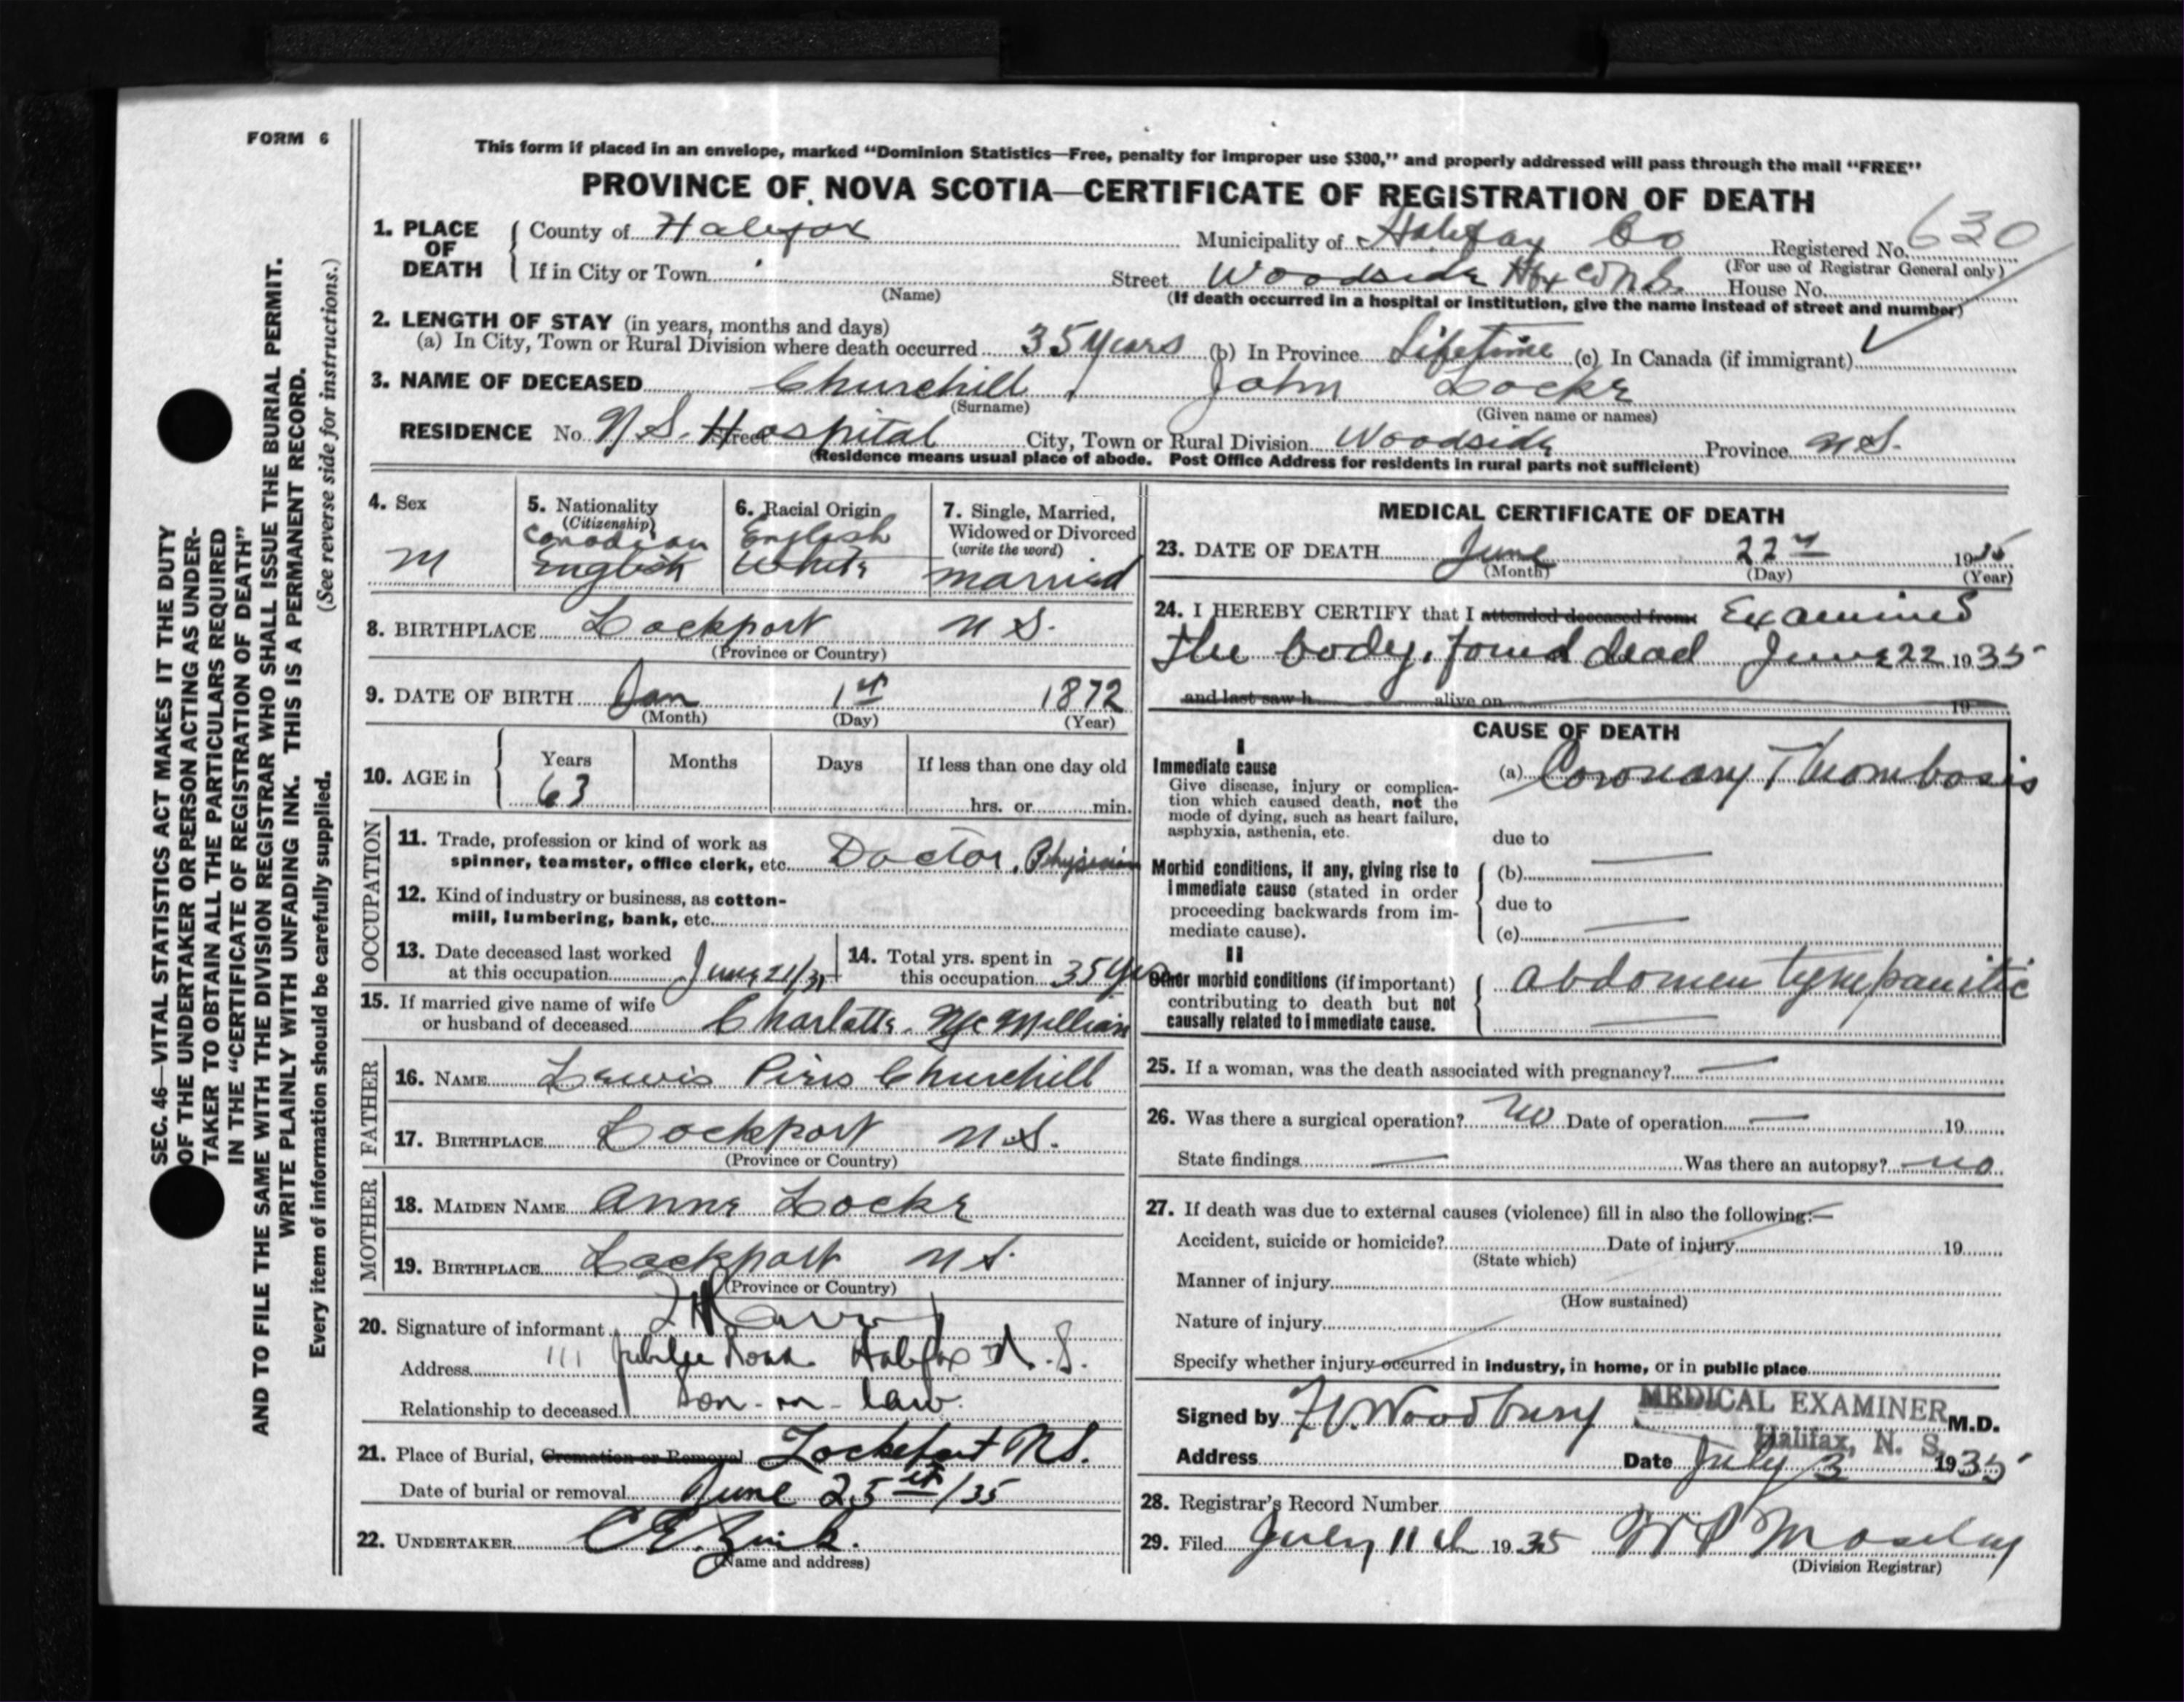 FORM 6
This form if placed in an envelope, marked “Dominion Statistics—Free, penalty for improper use $300,” and properly addressed will pass through the mail “FREE”
PROVINCE OF NOVA SCOTIA—CERTIFICATE OF REGISTRATION OF DEATH
1. PLACE OF DEATH { County of Halifax Municipality of Halifax Co Registered No. 630
(For use of Registrar General only)
If in City or Town Street Woodside Hfx Co N.S. House No.
(Name) (If death occurred in a hospital or institution, give the name instead of street and number)
2. LENGTH OF STAY (in years, months and days)
(a) In City, Town or Rural Division where death occurred 35 years (b) In Province Lifetime (c) In Canada (if immigrant)
3. NAME OF DECEASED Churchill, John Locke
(Surname) (Given name or names)
RESIDENCE No. N.S. Hospital Street City, Town or Rural Division Woodside Province N.S.
(Residence means usual place of abode. Post Office Address for residents in rural parts not sufficient)
4. Sex
M
5. Nationality
(Citizenship)
Canadian
English
6. Racial Origin
English
White
7. Single, Married,
Widowed or Divorced
(write the word)
married
8. BIRTHPLACE Lockport N S.
(Province or Country)
9. DATE OF BIRTH Jan 1st 1872
(Month) (Day) (Year)
10. AGE in { Years Months Days If less than one day old
63 hrs. or min.
OCCUPATION
11. Trade, profession or kind of work as
spinner, teamster, office clerk, etc. Doctor, Physician
12. Kind of industry or business, as cotton-
mill, lumbering, bank, etc.
13. Date deceased last worked
at this occupation June 21/35
14. Total yrs. spent in
this occupation 35 yrs
15. If married give name of wife
or husband of deceased Charlotte McMillian
FATHER
16. NAME Lewis Churchill
17. BIRTHPLACE Lockport N.S.
(Province or Country)
MOTHER
18. MAIDEN NAME Anne Locke
19. BIRTHPLACE Lockport N S.
(Province or Country)
20. Signature of informant
Address 111 Jubilee Road Halifax N.S.
Relationship to deceased Son-in-law.
21. Place of Burial, Cremation or Removal Lockeport N.S.
Date of burial or removal June 25th/35
22. UNDERTAKER C E. Zink.
(Name and address)
MEDICAL CERTIFICATE OF DEATH
23. DATE OF DEATH June 22nd 1935
(Month) (Day) (Year)
24. I HEREBY CERTIFY that I attended deceased from: Examined
the body, found dead June 22 1935
and last saw h alive on 19
CAUSE OF DEATH
I
Immediate cause
Give disease, injury or complica-
tion which caused death, not the
mode of dying, such as heart failure,
asphyxia, asthenia, etc.
(a) Coronary Thombosis
due to
Morbid conditions, if any, giving rise to
immediate cause (stated in order
proceeding backwards from im-
mediate cause).
(b)
due to
(c)
II
Other morbid conditions (if important)
contributing to death but not
causally related to immediate cause.
abdomen tympanitic
25. If a woman, was the death associated with pregnancy? —
26. Was there a surgical operation? No Date of operation — 19
State findings — Was there an autopsy? no
27. If death was due to external causes (violence) fill in also the following:—
Accident, suicide or homicide? Date of injury 19
(State which)
Manner of injury
(How sustained)
Nature of injury
Specify whether injury occurred in industry, in home, or in public place
Signed by F.V. Woodbury M.D.
MEDICAL EXAMINER
Halifax, N. S.
Address Date July 3 1935
28. Registrar's Record Number
29. Filed July 11th 1935 Mosley
(Division Registrar)
SEC. 46—VITAL STATISTICS ACT MAKES IT THE DUTY
OF THE UNDERTAKER OR PERSON ACTING AS UNDER-
TAKER TO OBTAIN ALL THE PARTICULARS REQUIRED
IN THE “CERTIFICATE OF REGISTRATION OF DEATH”
AND TO FILE THE SAME WITH THE DIVISION REGISTRAR WHO SHALL ISSUE THE BURIAL PERMIT.
WRITE PLAINLY WITH UNFADING INK. THIS IS A PERMANENT RECORD.
Every item of information should be carefully supplied. (See reverse side for instructions.)